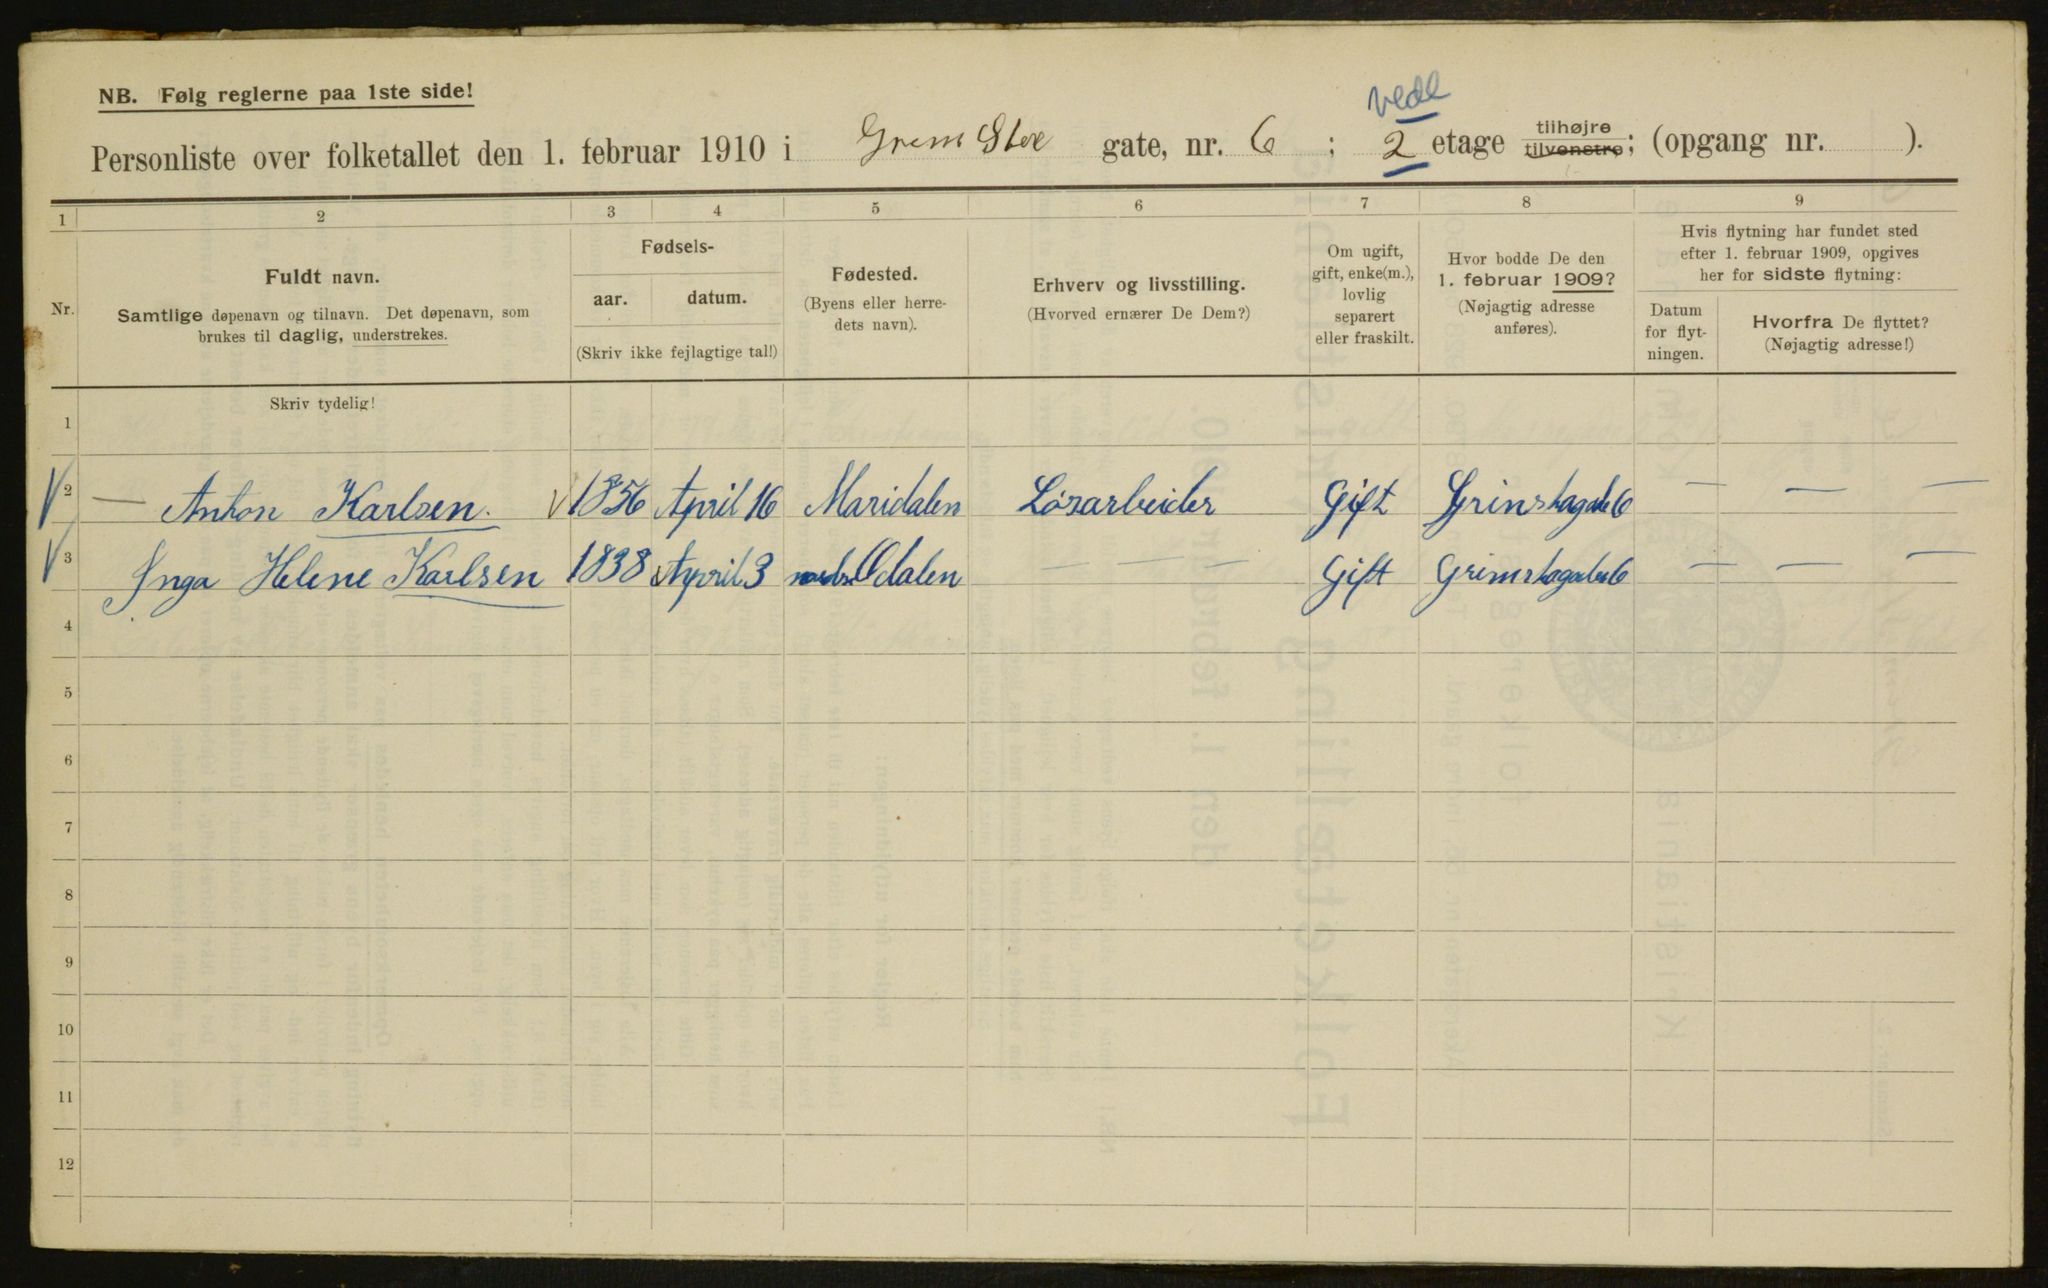 NB. Følg reglerne paa 1ste side!
vedl
Personliste over folketallet den 1. februar 1910 i Grem Stex gate, nr. 6 ; 2 etage tilhøjre tilvenstre; (opgang nr. ).
1 2 3 4 5 6 7 8 9
Nr.
Fuldt navn.
Samtlige døpenavn og tilnavn. Det døpenavn, som
brukes til daglig, understrekes.
Fødsels-
aar. datum.
(Skriv ikke fejlagtige tal!)
Fødested.
(Byens eller herre-
dets navn).
Erhverv og livsstilling.
(Hvorved ernærer De Dem?)
Om ugift,
gift, enke(m.),
lovlig
separert
eller fraskilt.
Hvor bodde De den
1. februar 1909?
(Nøjagtig adresse
anføres).
Hvis flytning har fundet sted
efter 1. februar 1909, opgives
her for sidste flytning:
Datum
for flyt-
ningen.
Hvorfra De flyttet?
(Nøjagtig adresse!)
Skriv tydelig!
1
2 — Anton Karlsen. 1856 April 16 Maridalen Løsarbeider Gift Grinstagade 6 — — —
3 Inga Helene Karlsen 1838 April 3 nordre Odalen — — — Gift Grimstagade 6 — — —
4
5
6
7
8
9
10
11
12